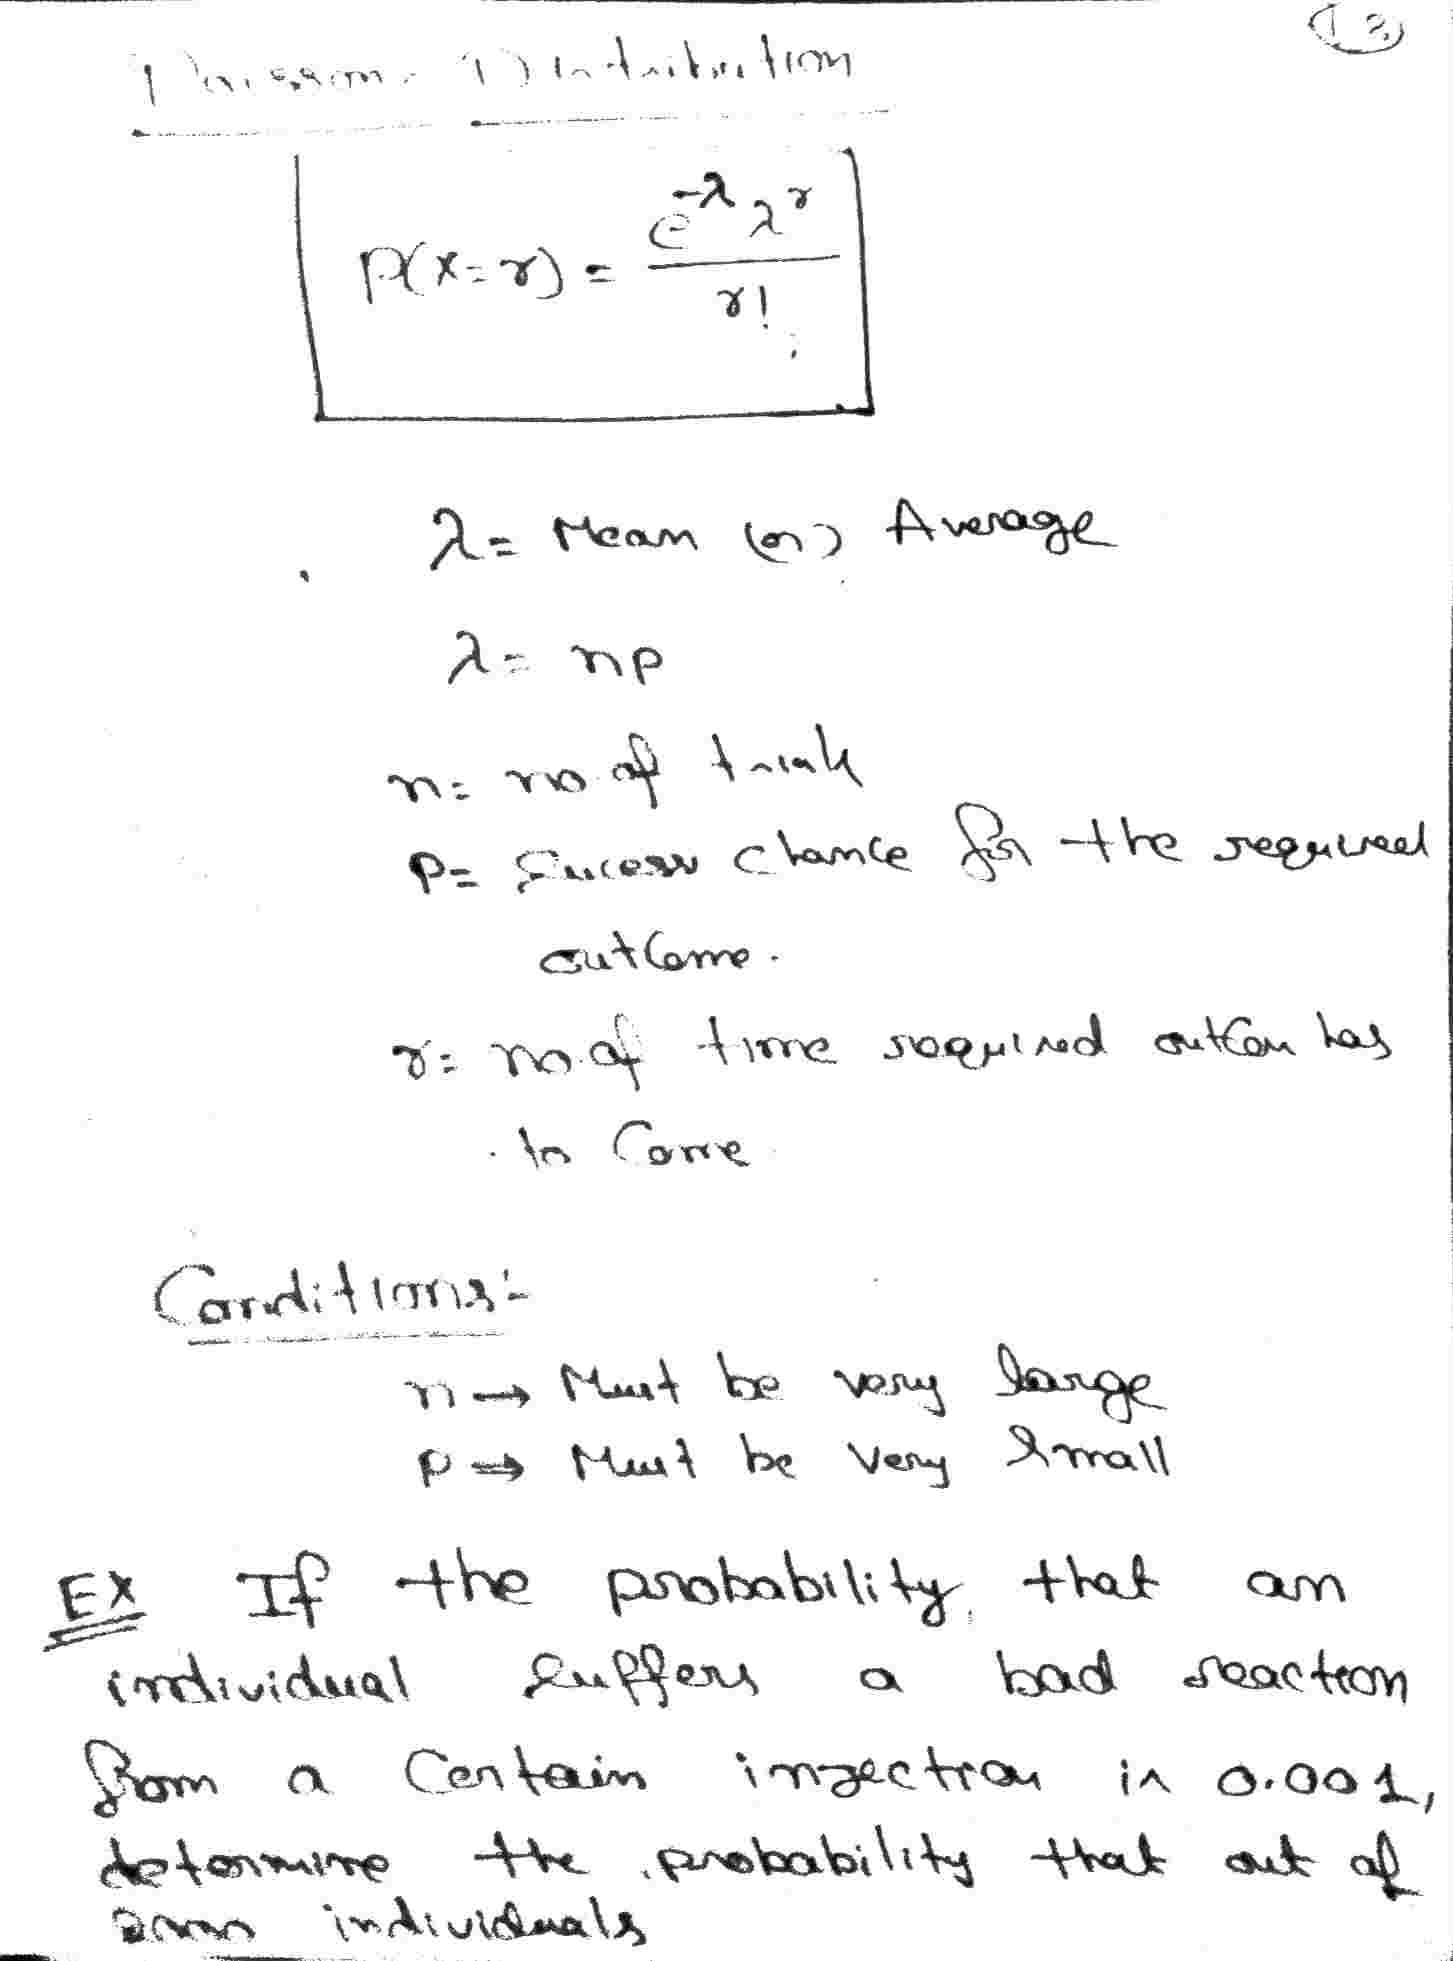 Poisson Distribution
P(x=r) = e^-λ λ^r / r!
λ = Mean (or) Average
λ = np
n = no. of trials
P = Sucess chance for the required
outcome.
r = no. of time required outcom has
to Come
Conditions:-
n → Must be very large
p → Must be very small
EX If the probability that an
individual suffers a bad reaction
from a Certain injection is 0.001,
determine the probability that out of
2000 individuals